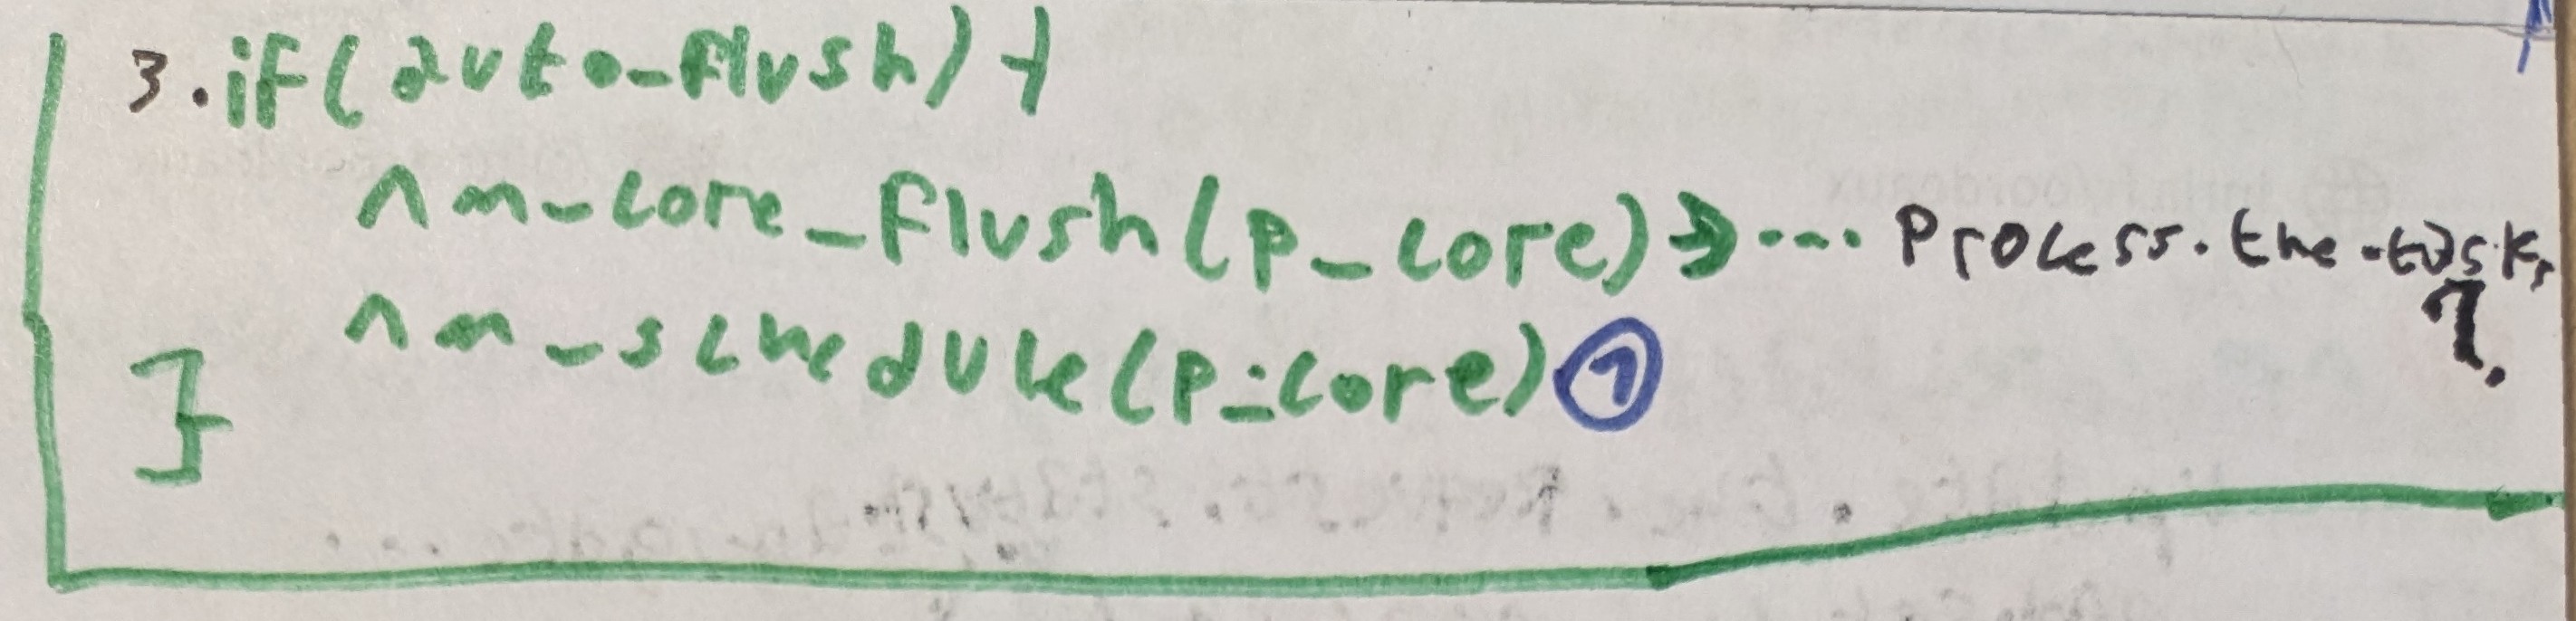 3. if(auto_flush) {
nm_core_flush(p_core) → ... Process. the. tasks
?
nm_schedule(p_core) ①
}